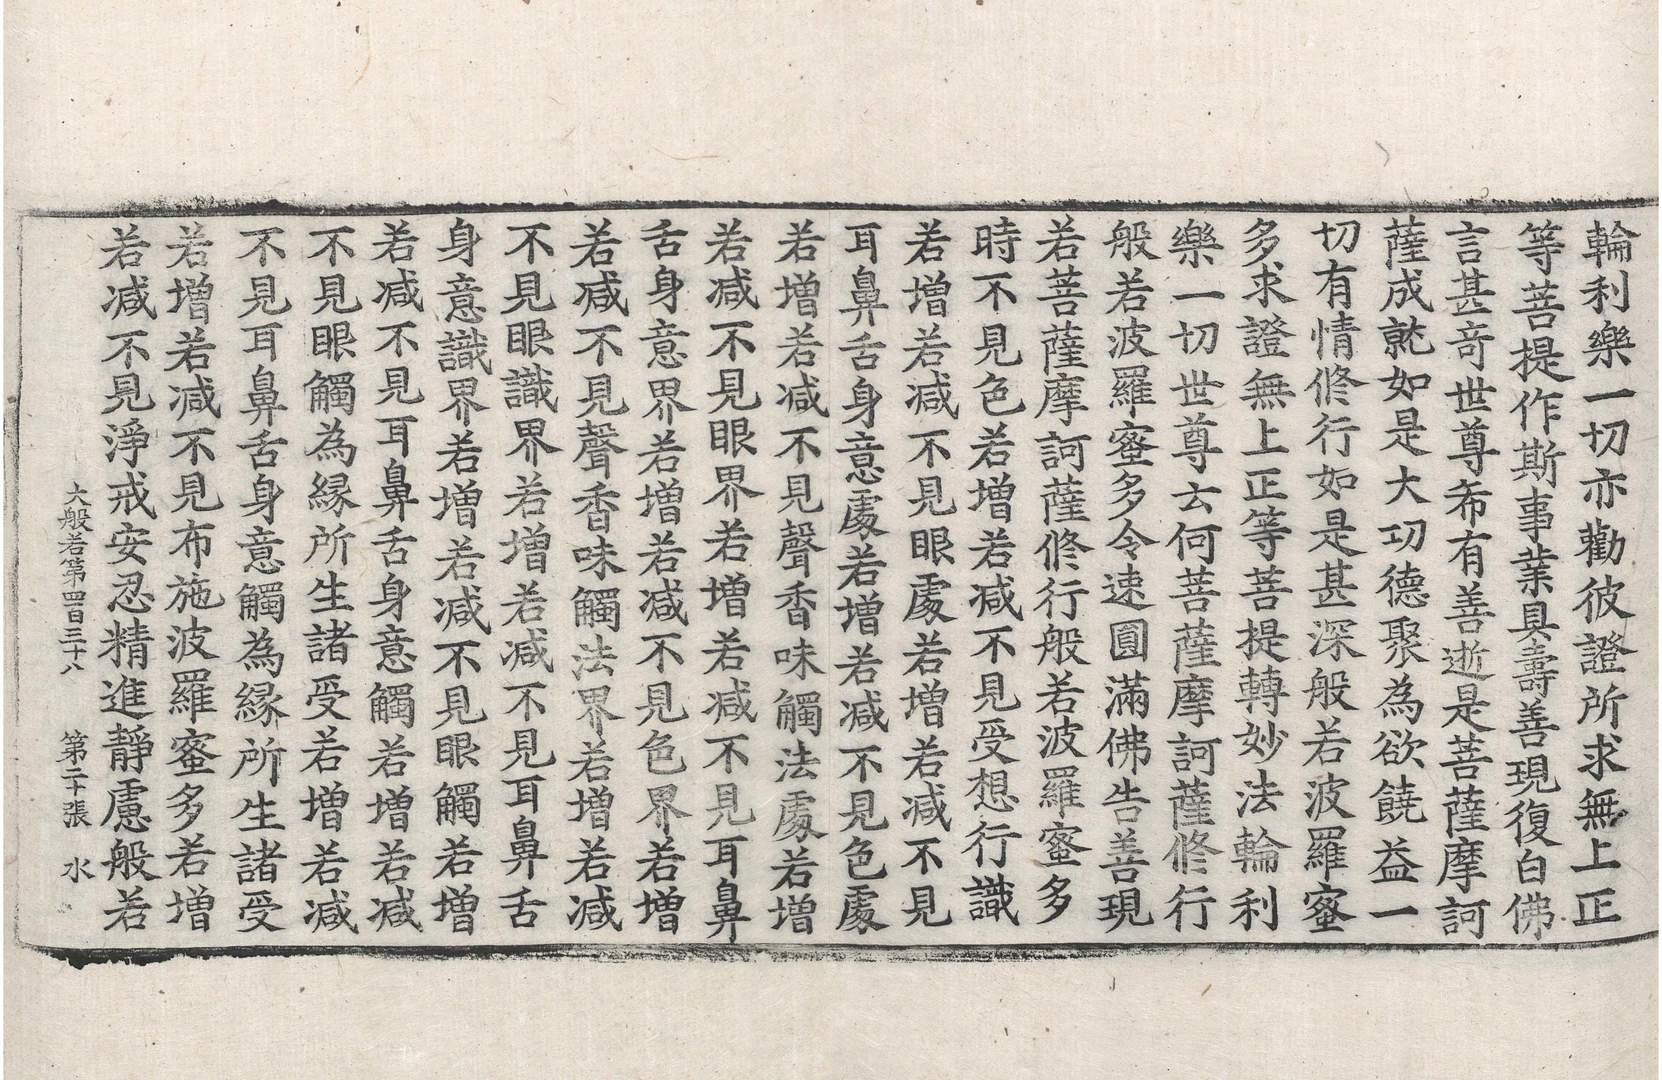 輪利樂一切亦勸彼證所求無上正
等菩提作斯事業具壽善現復白佛
言甚奇世尊希有善逝是菩薩摩訶
薩成就如是大功德聚為欲饒益一
切有情修行如是甚深般若波羅蜜
多求證無上正等菩提轉妙法輪利
樂一切世尊云何菩薩摩訶薩修行
般若波羅蜜多令速圓滿佛告善現
若菩薩摩訶薩修行般若波羅蜜多
時不見色若增若减不見受想行識
若增若减不見眼處若增若减不見
耳鼻舌身意處若增若减不見色處
若增若减不見聲香味觸法處若增
若减不見眼界若增若减不見耳鼻
舌身意界若增若减不見色界若增
若减不見聲香味觸法界若增若减
不見眼識界若增若减不見耳鼻舌
身意識界若增若减不見眼觸若增
若减不見耳鼻舌身意觸若增若减
不見眼觸為緣所生諸受若增若减
不見耳鼻舌身意觸為緣所生諸受
若增若减不見布施波羅蜜多若增
若减不見淨戒安忍精進靜慮般若
大般若第四百三十八　第二十張　水